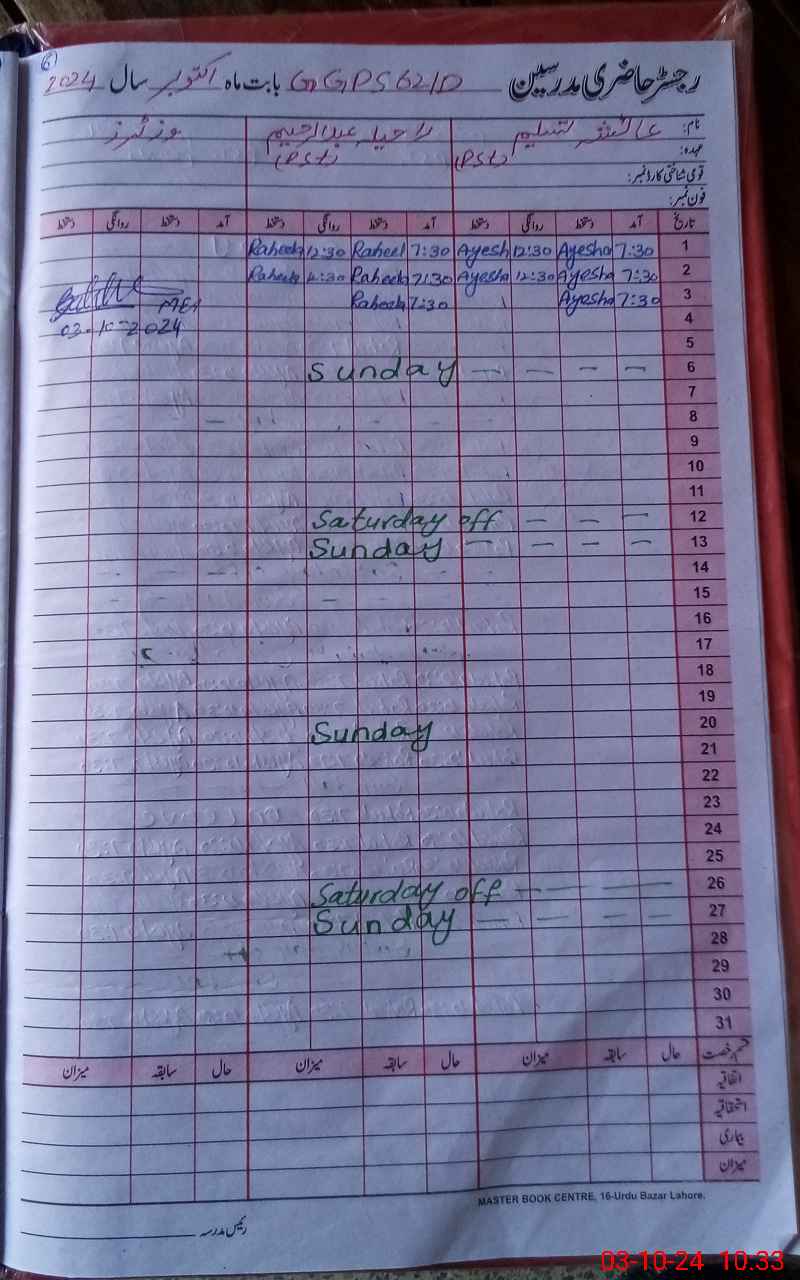 6
رجسٹر حاضری مدرسین GGPS 62/D بابت ماہ اکتوبر سال 2024
نام: عائشہ تسلیم راحیلہ عبدالرحیم وزٹرز
عہدہ: (PST) (PST)
قومی شناختی کارڈ نمبر:
فون نمبر:
تاریخ آمد دستخط روانگی دستخط آمد دستخط روانگی دستخط آمد دستخط روانگی دستخط
1 7:30 Ayesha 12:30 Ayesh 7:30 Raheel 12:30 Raheela
2 7:30 Ayesha 12:30 Ayesha 7:30 Raheela 12:30 Raheela
3 7:30 Ayesha 7:30 Raheela MEA
4 03-10-2024
5
6 Sunday — — — —
7
8
9
10
11
12 Saturday off — — —
13 Sunday — — — —
14
15
16
17
18
19
20 Sunday
21
22
23
24
25
26 Saturday off — — — —
27 Sunday — — — —
28
29
30
31
قسم رخصت حال سابقہ میزان حال سابقہ میزان حال سابقہ میزان
اتفاقیہ
استحقاقیہ
بیماری
میزان
MASTER BOOK CENTRE, 16-Urdu Bazar Lahore.
رئیس مدرسہ
03-10-24 10:33